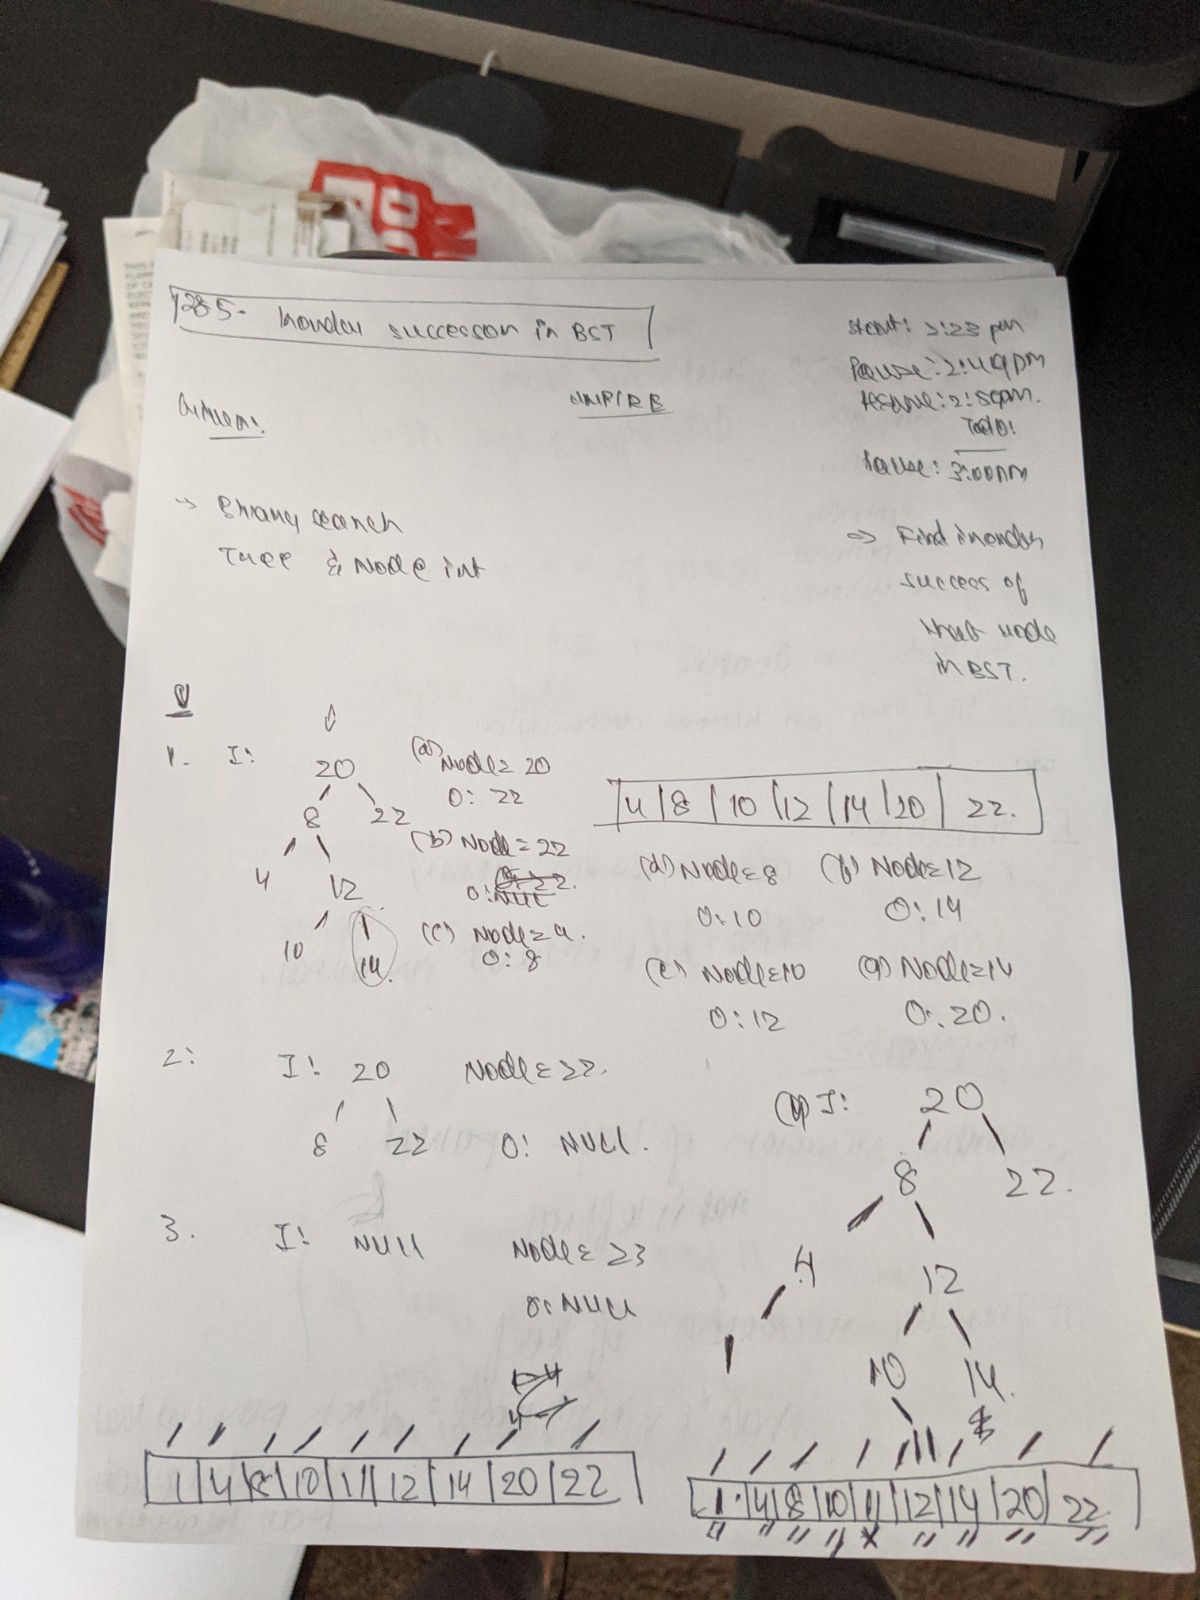 285- Inorder successor in BST
Start: 2:23 pm
Pause: 2:49pm
Resume: 2:50pm.
Todo!
Pause: 3:00pm
UMPIRE
Given:
→ Binary search
Tree & Node int
=> Find inorder
success of
that node
in BST.
U
1. I:
20
8 22
4 12
10 14
(a) Node = 20
O: 22
(b) Node = 22
O: NULL
(c) Node = 4.
O: 8
4 | 8 | 10 | 12 | 14 | 20 | 22.
(d) Node = 8
O: 10
(e) Node = 10
O: 12
(f) Node = 12
O: 14
(g) Node = 14
O: 20.
2: I: 20 Node = 22.
8 22 O: NULL.
3. I: NULL Node = 23
O: NULL
(4) I: 20
8 22.
4 12
1 10 14.
11
1 | 4 | 8 | 10 | 11 | 12 | 14 | 20 | 22
1 | 4 | 8 | 10 | 11 | 12 | 14 | 20 | 22